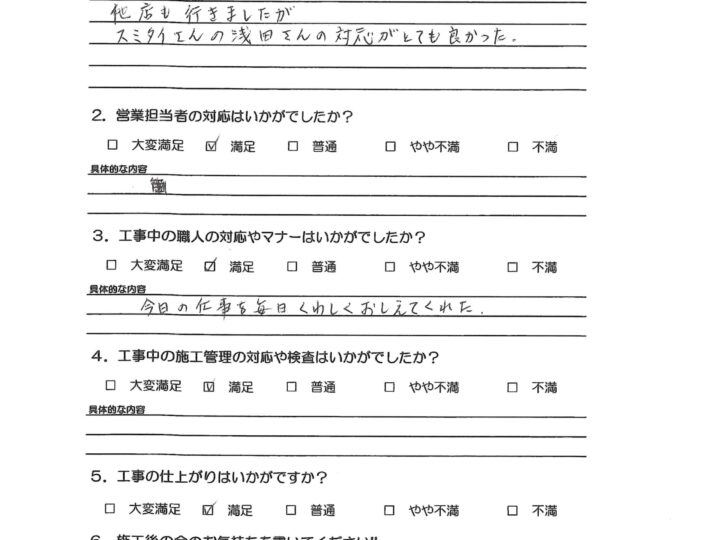 他店も行きましたが
スミタイさんの浅田さんの対応がとても良かった.
2. 営業担当者の対応はいかがでしたか？
□ 大変満足 ☑ 満足 □ 普通 □ やや不満 □ 不満
具体的な内容
3. 工事中の職人の対応やマナーはいかがでしたか？
□ 大変満足 ☑ 満足 □ 普通 □ やや不満 □ 不満
具体的な内容
今日の仕事を毎日くわしくおしえてくれた.
4. 工事中の施工管理の対応や検査はいかがでしたか？
□ 大変満足 ☑ 満足 □ 普通 □ やや不満 □ 不満
具体的な内容
5. 工事の仕上がりはいかがですか？
□ 大変満足 ☑ 満足 □ 普通 □ やや不満 □ 不満